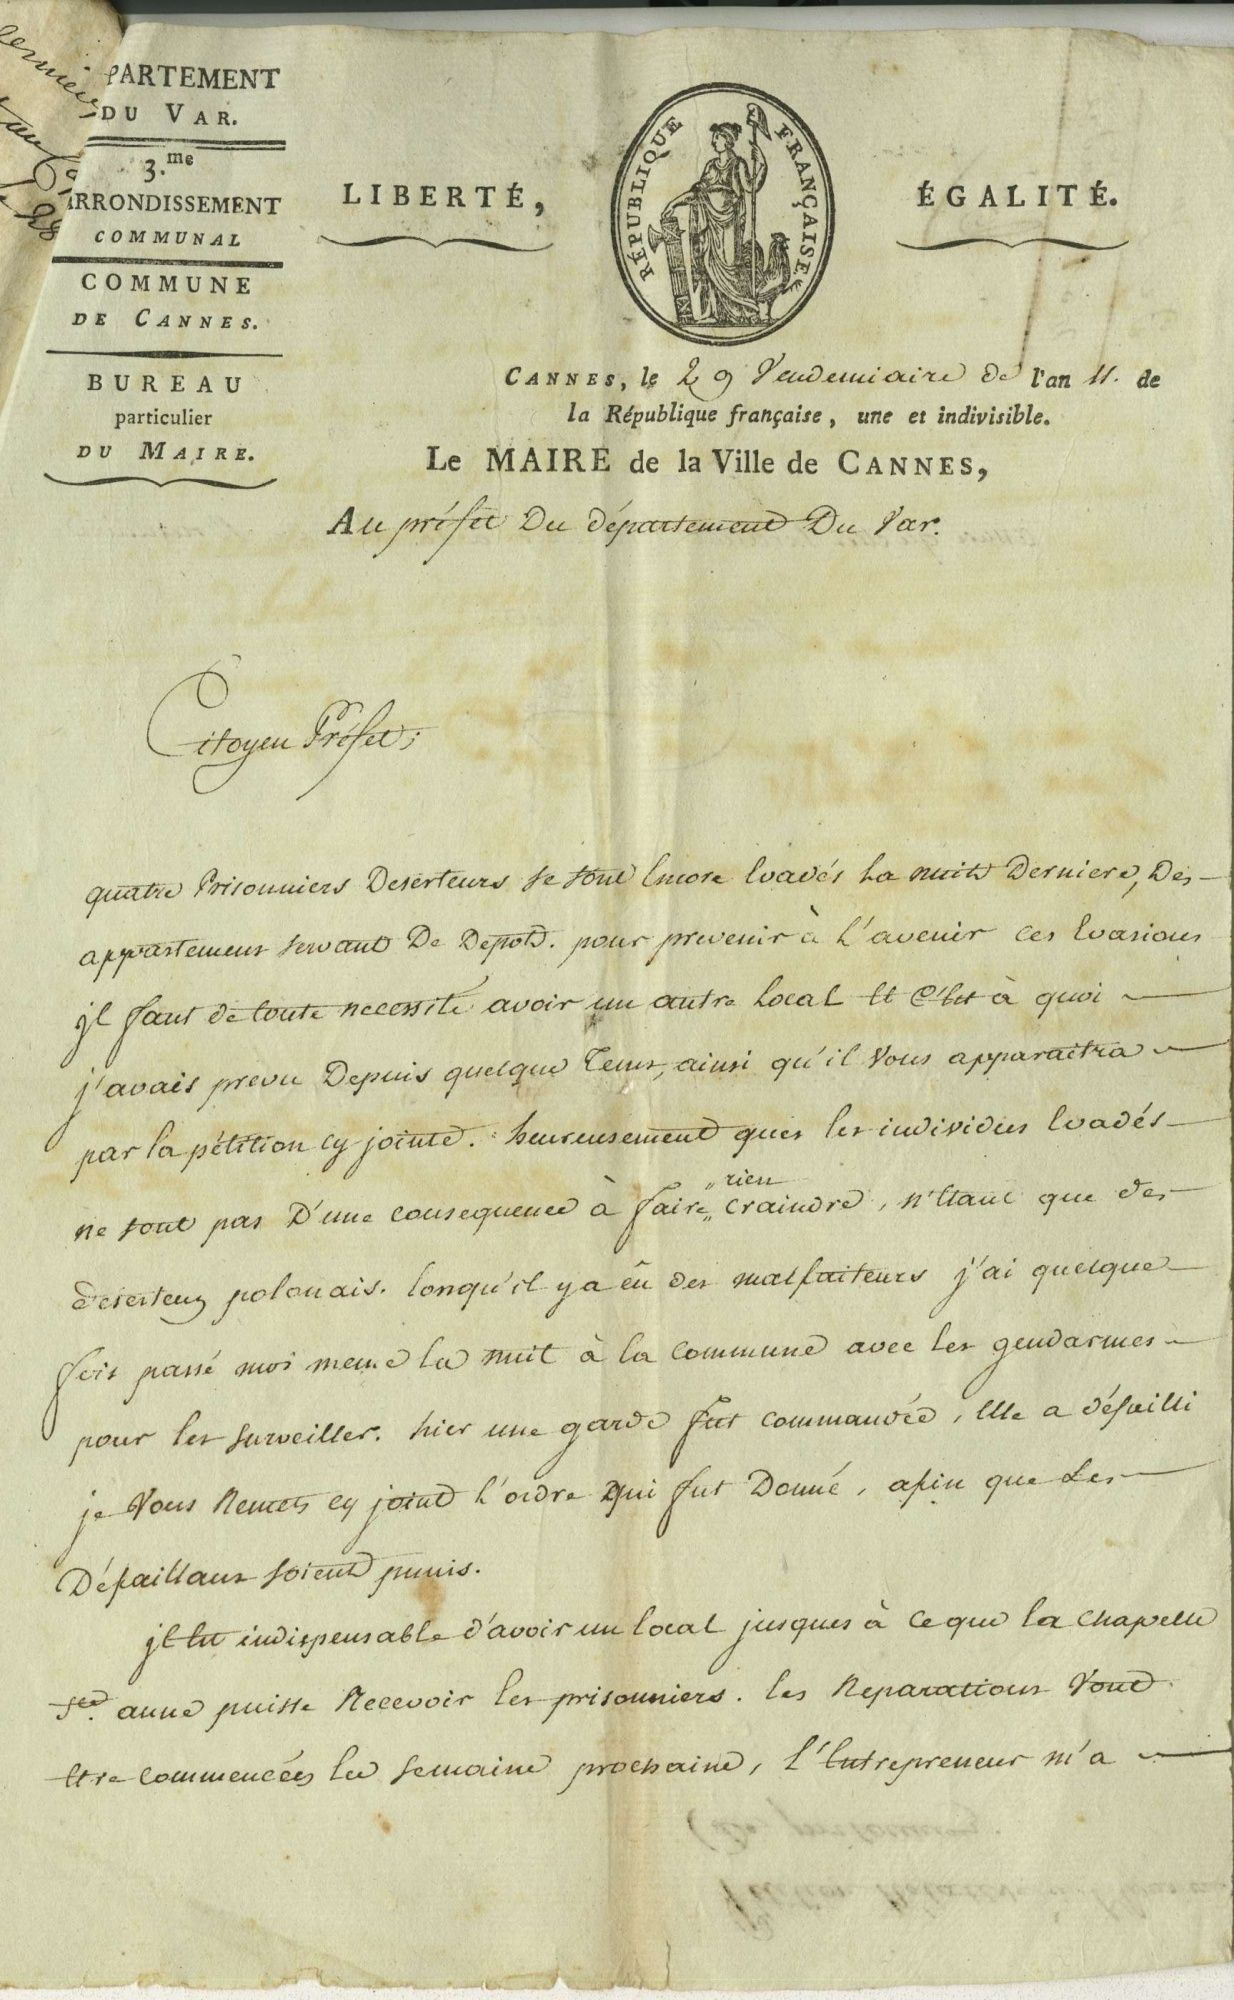 PARTEMENT
DU VAR.
3.me
ARRONDISSEMENT
COMMUNAL
COMMUNE
DE CANNES.
BUREAU
particulier
DU MAIRE.
LIBERTÉ,
RÉPUBLIQUE FRANÇAISE
ÉGALITÉ.
CANNES, le 29 Vendemiaire de l'an 11. de
la République française, une et indivisible.
Le MAIRE de la Ville de CANNES,
Au préfet Du département Du Var.
Citoyen Préfet;
quatre Prisonniers Deserteurs se sont Encore Evadés La nuit Derniere, Des
appartemens servant De Depot. pour prevenir à L'avenir ces Evasions
jl faut de toute necessité avoir un autre Local Et C'est à quoi
j'avais prevu Depuis quelque Tems, ainsi qu'il Vous apparaitra
par la pétition cy jointe. heureusement ques les individus Evadés
ne sont pas D'une consequence à faire „rien„ craindre, n'Etant que des
deserteurs polonais. lorsqu'il y a êu des malfaiteurs j'ai quelque
fois passé moi meme la nuit à la commune avec les gendarmes
pour les surveiller. hier une garde fut commandée, Elle a défailli
je Vous Remets cy joint L'ordre qui fut Donné, afin que Les
Défaillans soient punis.
jl Est indispensable d'avoir un local jusques à ce que la chapelle
Ste. anne puisse Recevoir les prisonniers. les Reparations Vont
Etre commencées la semaine prochaine, L'Entrepreneur m'a